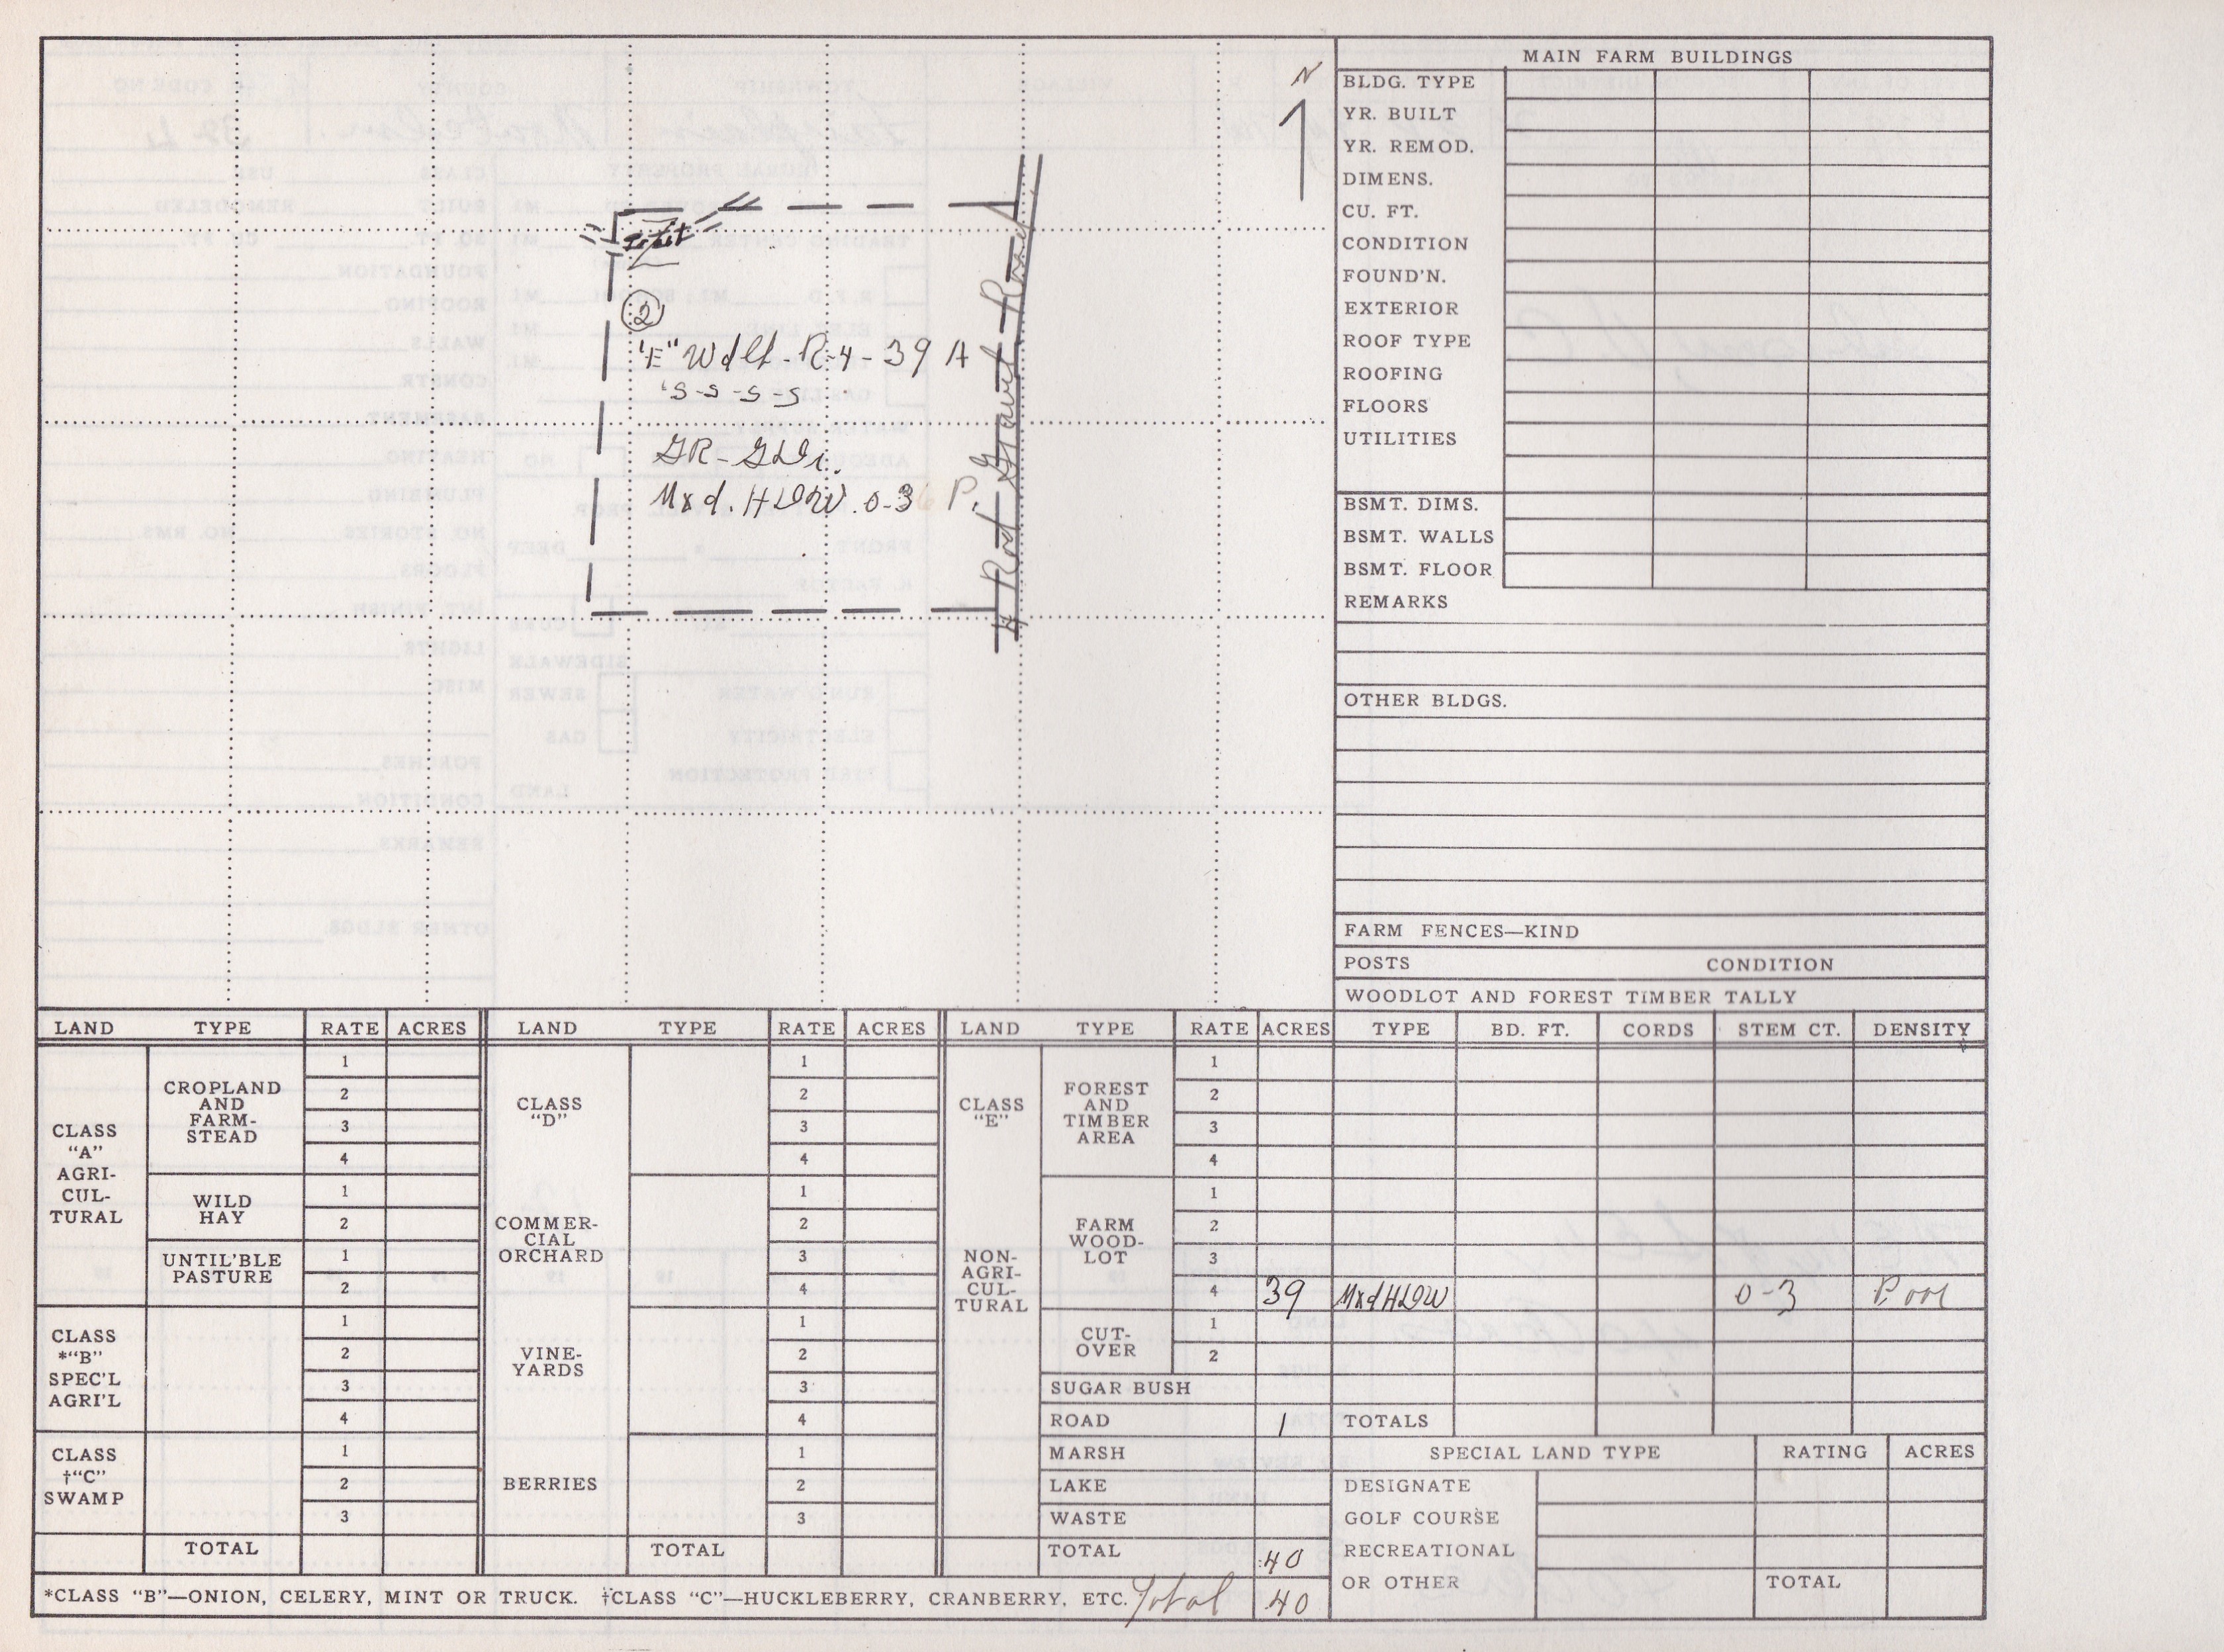 N
②
"E" Wdlt - R-4 - 39 A
'S-S-S-S
GR-GLDi.
Mxd. HDW. 0-3 P.
4 Rod Gravel Road
MAIN FARM BUILDINGS
BLDG. TYPE
YR. BUILT
YR. REMOD.
DIMENS.
CU. FT.
CONDITION
FOUND'N.
EXTERIOR
ROOF TYPE
ROOFING
FLOORS
UTILITIES
BSMT. DIMS.
BSMT. WALLS
BSMT. FLOOR
REMARKS
OTHER BLDGS.
FARM FENCES—KIND
POSTS CONDITION
WOODLOT AND FOREST TIMBER TALLY
LAND TYPE RATE ACRES LAND TYPE RATE ACRES LAND TYPE RATE ACRES TYPE BD. FT. CORDS STEM CT. DENSITY
CLASS
"A"
AGRI-
CUL-
TURAL
CROPLAND
AND
FARM-
STEAD
1
2
3
4
WILD
HAY
1
2
UNTIL'BLE
PASTURE
1
2
CLASS
*"B"
SPEC'L
AGRI'L
1
2
3
4
CLASS
†"C"
SWAMP
1
2
3
TOTAL
CLASS
"D"
COMMER-
CIAL
ORCHARD
1
2
3
4
1
2
3
4
VINE-
YARDS
1
2
3
4
BERRIES
1
2
3
TOTAL
CLASS
"E"
NON-
AGRI-
CUL-
TURAL
FOREST
AND
TIMBER
AREA
1
2
3
4
FARM
WOOD-
LOT
1
2
3
4 39 Mxd HDW 0-3 Poor
CUT-
OVER
1
2
SUGAR BUSH
ROAD 1 TOTALS
MARSH
LAKE
WASTE
TOTAL 40
SPECIAL LAND TYPE RATING ACRES
DESIGNATE
GOLF COURSE
RECREATIONAL
OR OTHER TOTAL
*CLASS "B"—ONION, CELERY, MINT OR TRUCK. †CLASS "C"—HUCKLEBERRY, CRANBERRY, ETC. Total 40